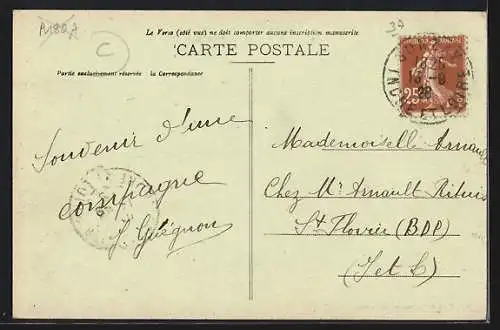 A180.7
C
39
Le Verso (côté vue) ne doit comporter aucune inscription manuscrite
CARTE POSTALE
Partie exclusivement réservée à la Correspondance
25
INDRE ET LOIRE
Souvenir d'une
compagne
J. Guégnon
Mademoiselle Arnault
Chez Mr Arnault
St Flovier (BDP)
(I et L)